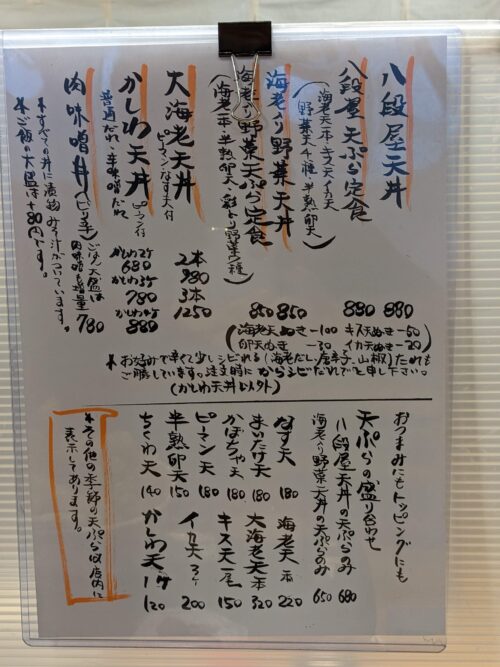 八段屋天丼 880
八段屋天ぷら定食 880
(海老天一本・キス天・イカ天
野菜天4種・半熟卵天)
海老と野菜天丼 850
海老と野菜天ぷら定食 850
(海老二本・半熟卵天・彩より野菜5種)
大海老天丼
ピーマンなす天付
2本 980
3本 1250
かしわ天丼 ピーマン付
普通だれ 辛味噌だれ
かしわ2ケ 680
かしわ3ケ 780
かしわ4ケ 880
肉味噌丼(ピリ辛)
ごはん大盛は
肉味噌も増量 780
*すべての丼に漬物みそ汁がついています。
*ご飯の大盛は+80円です。
(海老天ぬき-100 キス天ぬき-50
卵天ぬき-30 イカ天ぬき-20)
*お好みで辛くて少しシビれる(海老だし、唐辛子、山椒)たれも
ご用意しています。注文時にからシビだれでと申し下さい。
(かしわ天丼以外)
おつまみにもトッピングにも
天ぷらの盛り合わせ
八段屋天丼の天ぷらのみ 680
海老と野菜天丼の天ぷらのみ 650
なす天 180
まいたけ天 180
かぼちゃ天 180
ピーマン天 180
半熟卵天 150
ちくわ天 140
海老天一本 220
大海老天一本 320
キス天一尾 150
イカ天3ケ 200
かしわ天1ケ 120
*その他の季節の天ぷらは店内に
表示してあります。